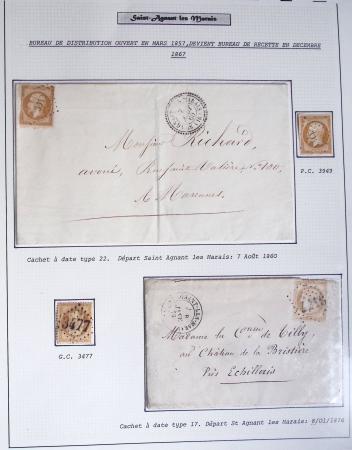 Saint-Agnant les Marais
BUREAU DE DISTRIBUTION OUVERT EN MARS 1857, DEVIENT BUREAU DE RECETTE EN DECEMBRE
1867
Monsieur Richard,
avoué,
A Marennes.
P.C. 3949
Cachet à date type 22. Départ Saint Agnant les Marais: 7 Août 1860
3477
G.C. 3477
Madame la
de Tilly,
au Château de la Bristière
Près Echillais
Cachet à date type 17. Départ St Agnant les Marais: 8/01/1876